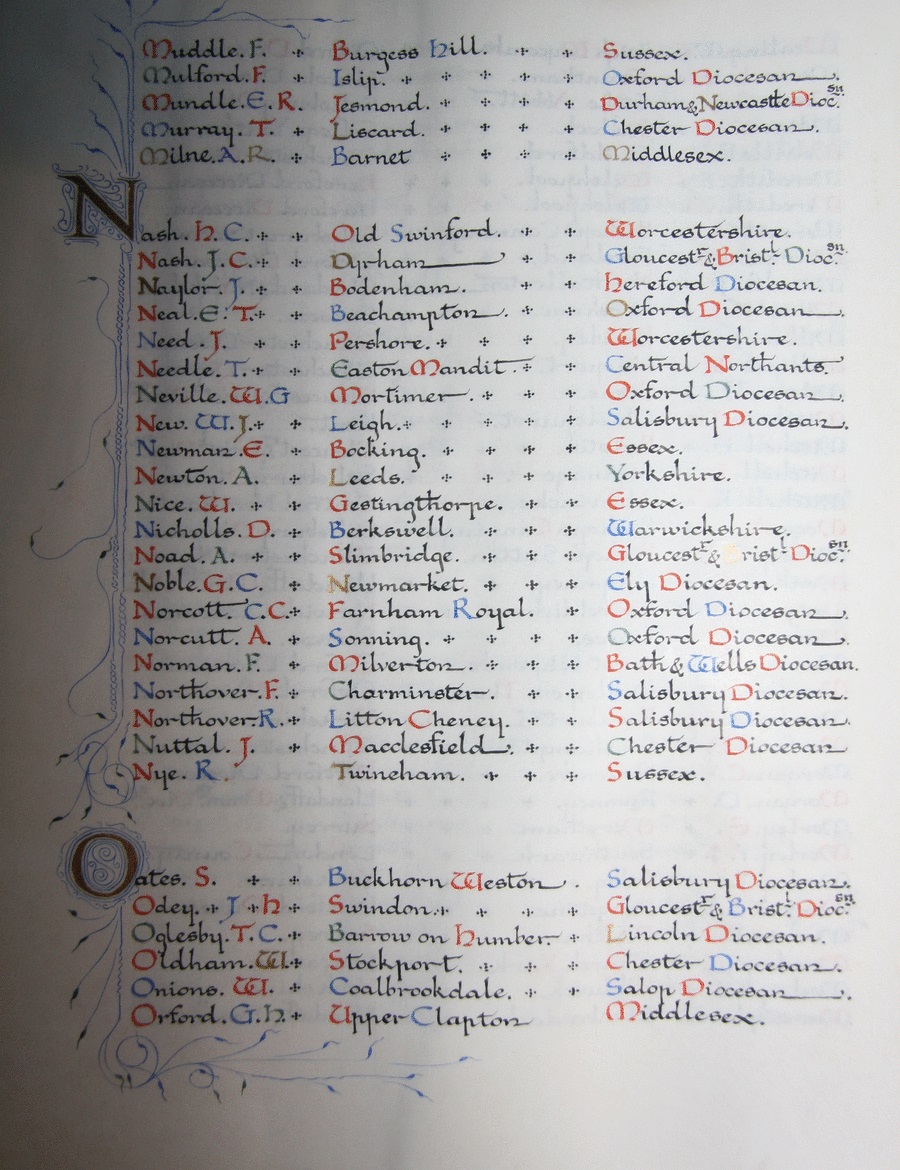 Muddle. F. + Burgess Hill. + + Sussex.
Mulford. F. + Islip. + + + + Oxford Diocesan.
Mundle. E. R. Jesmond. + + + + Durham & Newcastle Diocsn.
Murray. T. + Liscard. + + + + Chester Diocesan.
Milne. A. R. + Barnet + + + Middlesex.
Nash. H. C. + Old Swinford. + + Worcestershire.
Nash. J. C. + + Dyrham + + Gloucestr & Bristl Diocsn.
Naylor. J. + Bodenham. + + Hereford Diocesan.
Neal. E. T. + Beachampton. + + Oxford Diocesan.
Need. J. + + Pershore. + + + + Worcestershire.
Needle. T. + + Easton Mandit. + + Central Northants.
Neville. W. G Mortimer. + + + Oxford Diocesan.
New. W. J. + Leigh. + + + + + Salisbury Diocesan.
Newman. E. + Bocking. + + + + Essex.
Newton. A. + Leeds. + + + + Yorkshire.
Nice. W. + Gestingthorpe. + + Essex.
Nicholls. D. + Berkswell. + + + Warwickshire.
Noad. A. + + Slimbridge. + + + Gloucestr & Bristl Diocsn.
Noble. G. C. + Newmarket. + + + Ely Diocesan.
Norcott. C. C. + Farnham Royal. + Oxford Diocesan.
Norcutt. A. + Sonning. + + + + Oxford Diocesan.
Norman. F. + Milverton. + + + Bath & Wells Diocesan.
Northover. F. + Charminster. + + Salisbury Diocesan.
Northover. R. + Litton Cheney. + + Salisbury Diocesan.
Nuttal. J. Macclesfield. + + Chester Diocesan
Nye. R Twineham. + + + Sussex.
Oates. S. + + Buckhorn Weston. Salisbury Diocesan.
Odey. + J + H Swindon. + + + + Gloucestr & Bristl Diocsn.
Oglesby. T. C. + Barrow on Humber. + Lincoln Diocesan.
Oldham. W. + Stockport. + + + Chester Diocesan.
Onions. W. + Coalbrookdale. + + Salop Diocesan.
Orford. G. H. + Upper Clapton Middlesex.